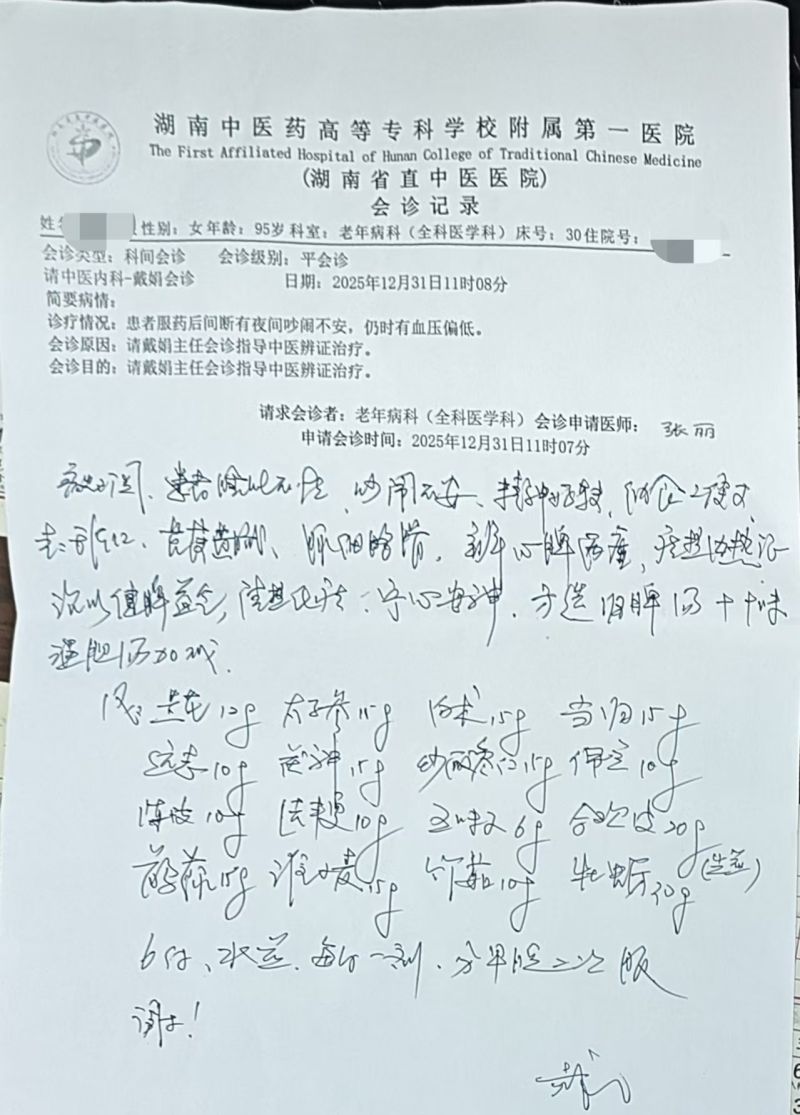 湖南中医药高等专科学校附属第一医院
The First Affiliated Hospital of Hunan College of Traditional Chinese Medicine
(湖南省直中医医院)
会诊记录
姓名 性别：女 年龄：95岁 科室：老年病科（全科医学科）床号：30 住院号：
会诊类型：科间会诊 会诊级别：平会诊
请中医内科-戴娟会诊 日期：2025年12月31日11时08分
简要病情：
诊疗情况：患者服药后间断有夜间吵闹不安，仍时有血压偏低。
会诊原因：请戴娟主任会诊指导中医辨证治疗。
会诊目的：请戴娟主任会诊指导中医辨证治疗。
请求会诊者：老年病科（全科医学科）会诊申请医师： 张丽
申请会诊时间：2025年12月31日11时07分
患者 吵闹不安、精神
脉细略滑 心脾
治以健脾益气，清热化痰，宁心安神．方选归脾汤＋十味
温胆汤加减．
12g 太子参15g 白术15g 当归15g
远志10g 茯神15g 炒酸枣仁15g 10g
陈皮10g 法半夏10g 五味子6g 合欢皮20g
15g 浮小麦15g 竹茹10g 牡蛎20g(先煎)
6付、水煎．每日一剂．分早晚二次服
谢谢!